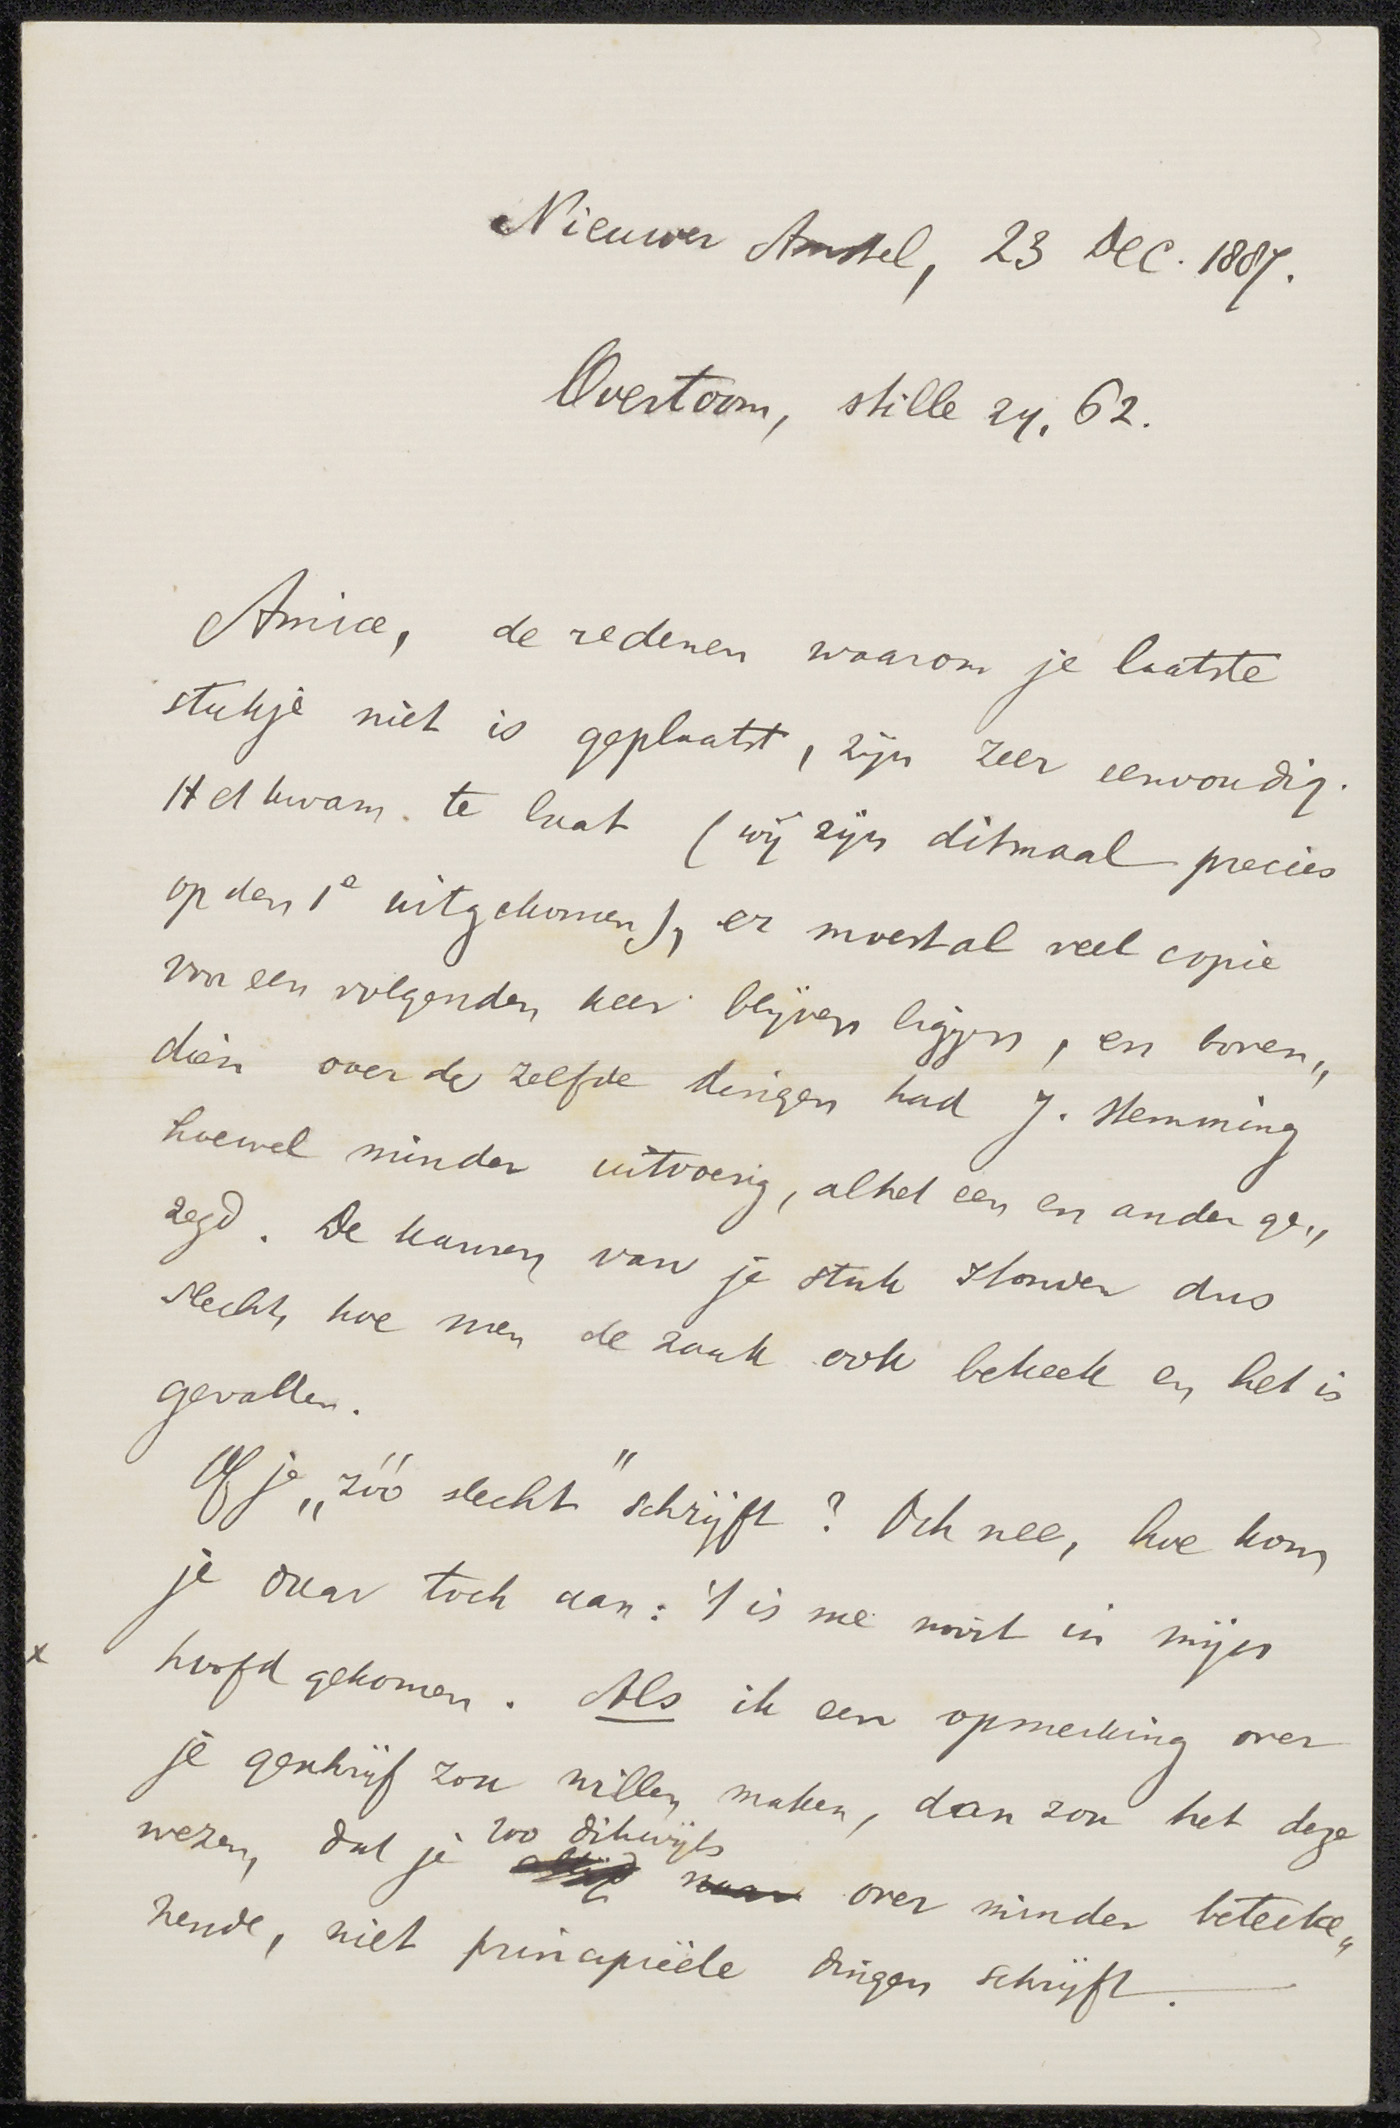 Nieuwer Amstel, 23 Dec. 1887.
Overtoom, stille zij, 62.
Amice, de redenen waarom je laatste
stukje niet is geplaatst, zijn zeer eenvoudig.
Het kwam te laat (wij zijn ditmaal precies
op den 1e uitgekomen), er moest al veel copie
voor een volgenden keer blijven liggen, en boven„
dien over de zelfde dingen had J. Stemming
hoewel minder uitvoerig, al het een en ander ge„
zegd. De kansen van je stuk stonden dus
slecht, hoe men de zaak ook bekeek en het is
gevallen.
Of je „zóó slecht" schrijft? Och nee, hoe kom
je daar toch aan: 't is me nooit in mijn
x hoofd gekomen. Als ik een opmerking over
je geschrijf zou willen maken, dan zou het deze
zoo dikwijls
wezen, dat je altijd naar over minder beteeke„
nende, niet principiëele dingen schrijft.